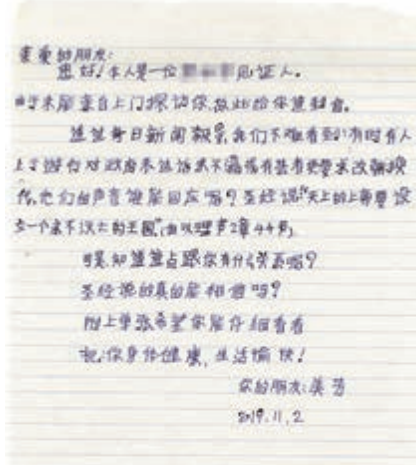 亲爱的朋友:
您好!本人是一位 见证人。
由于未能亲自上门探访你,故此给你 。
每日新闻 我们不难看到:有时有人
上 对政府 不满或有 要求改朝换
代,他们的声音能 回应吗?圣经说:“天上的上帝要设
立一个永不灭亡的王国”(但以理书2章44节)
想知 这一点跟你有什么关系吗?
圣经说的真的能相信吗?
附上单张希望你能仔细看看
祝:你身体健康,生活愉快!
你的朋友:美芳
2019.11.2